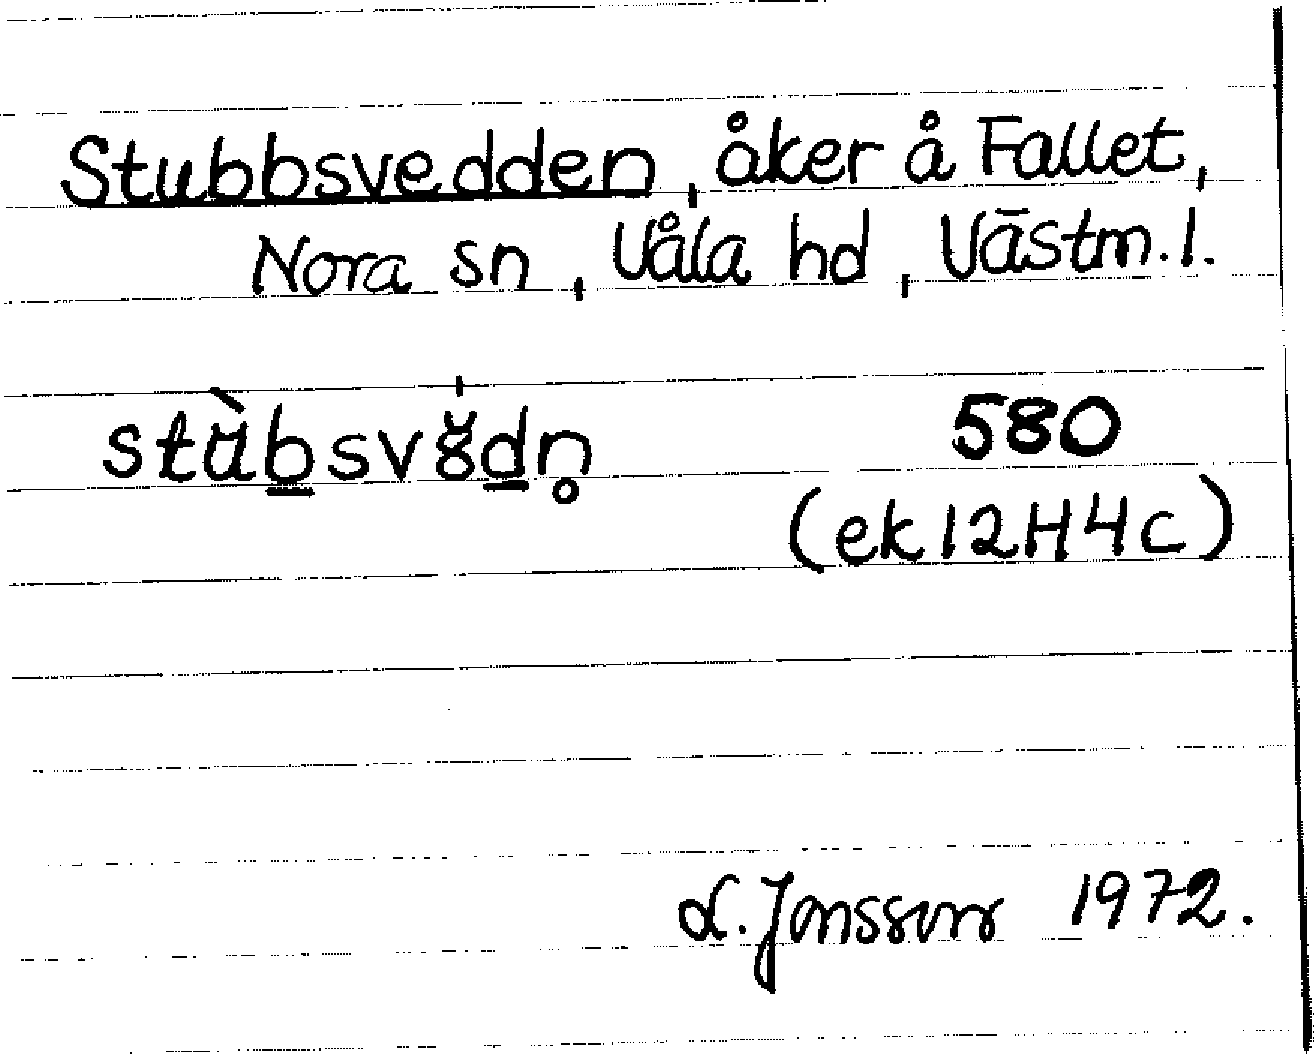 Stubbsvedden, åker å Fallet,
Nora sn, Våla hd, Västm. l.
stu̇̀b̲svɞ̆d̲n̥ 580
(ek 12H4c)
L. Jonsson 1972.